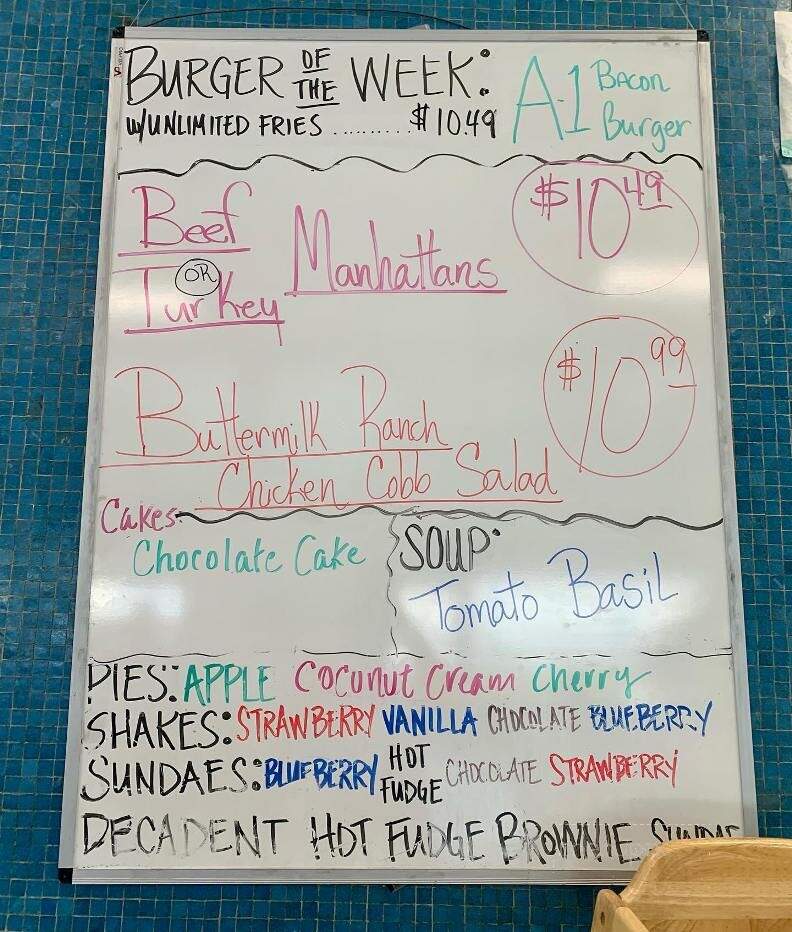 BURGER OF THE WEEK: A-1 Bacon Burger
W/UNLIMITED FRIES .......... $10.49
Beef OR Turkey Manhattans $10 49
Buttermilk Ranch
Chicken Cobb Salad $10 99
Cakes:
Chocolate Cake
SOUP:
Tomato Basil
PIES: APPLE Coconut Cream Cherry
SHAKES: STRAWBERRY VANILLA CHOCOLATE BLUEBERRY
SUNDAES: BLUEBERRY HOT FUDGE CHOCOLATE STRAWBERRY
DECADENT HOT FUDGE BROWNIE SUNDAE